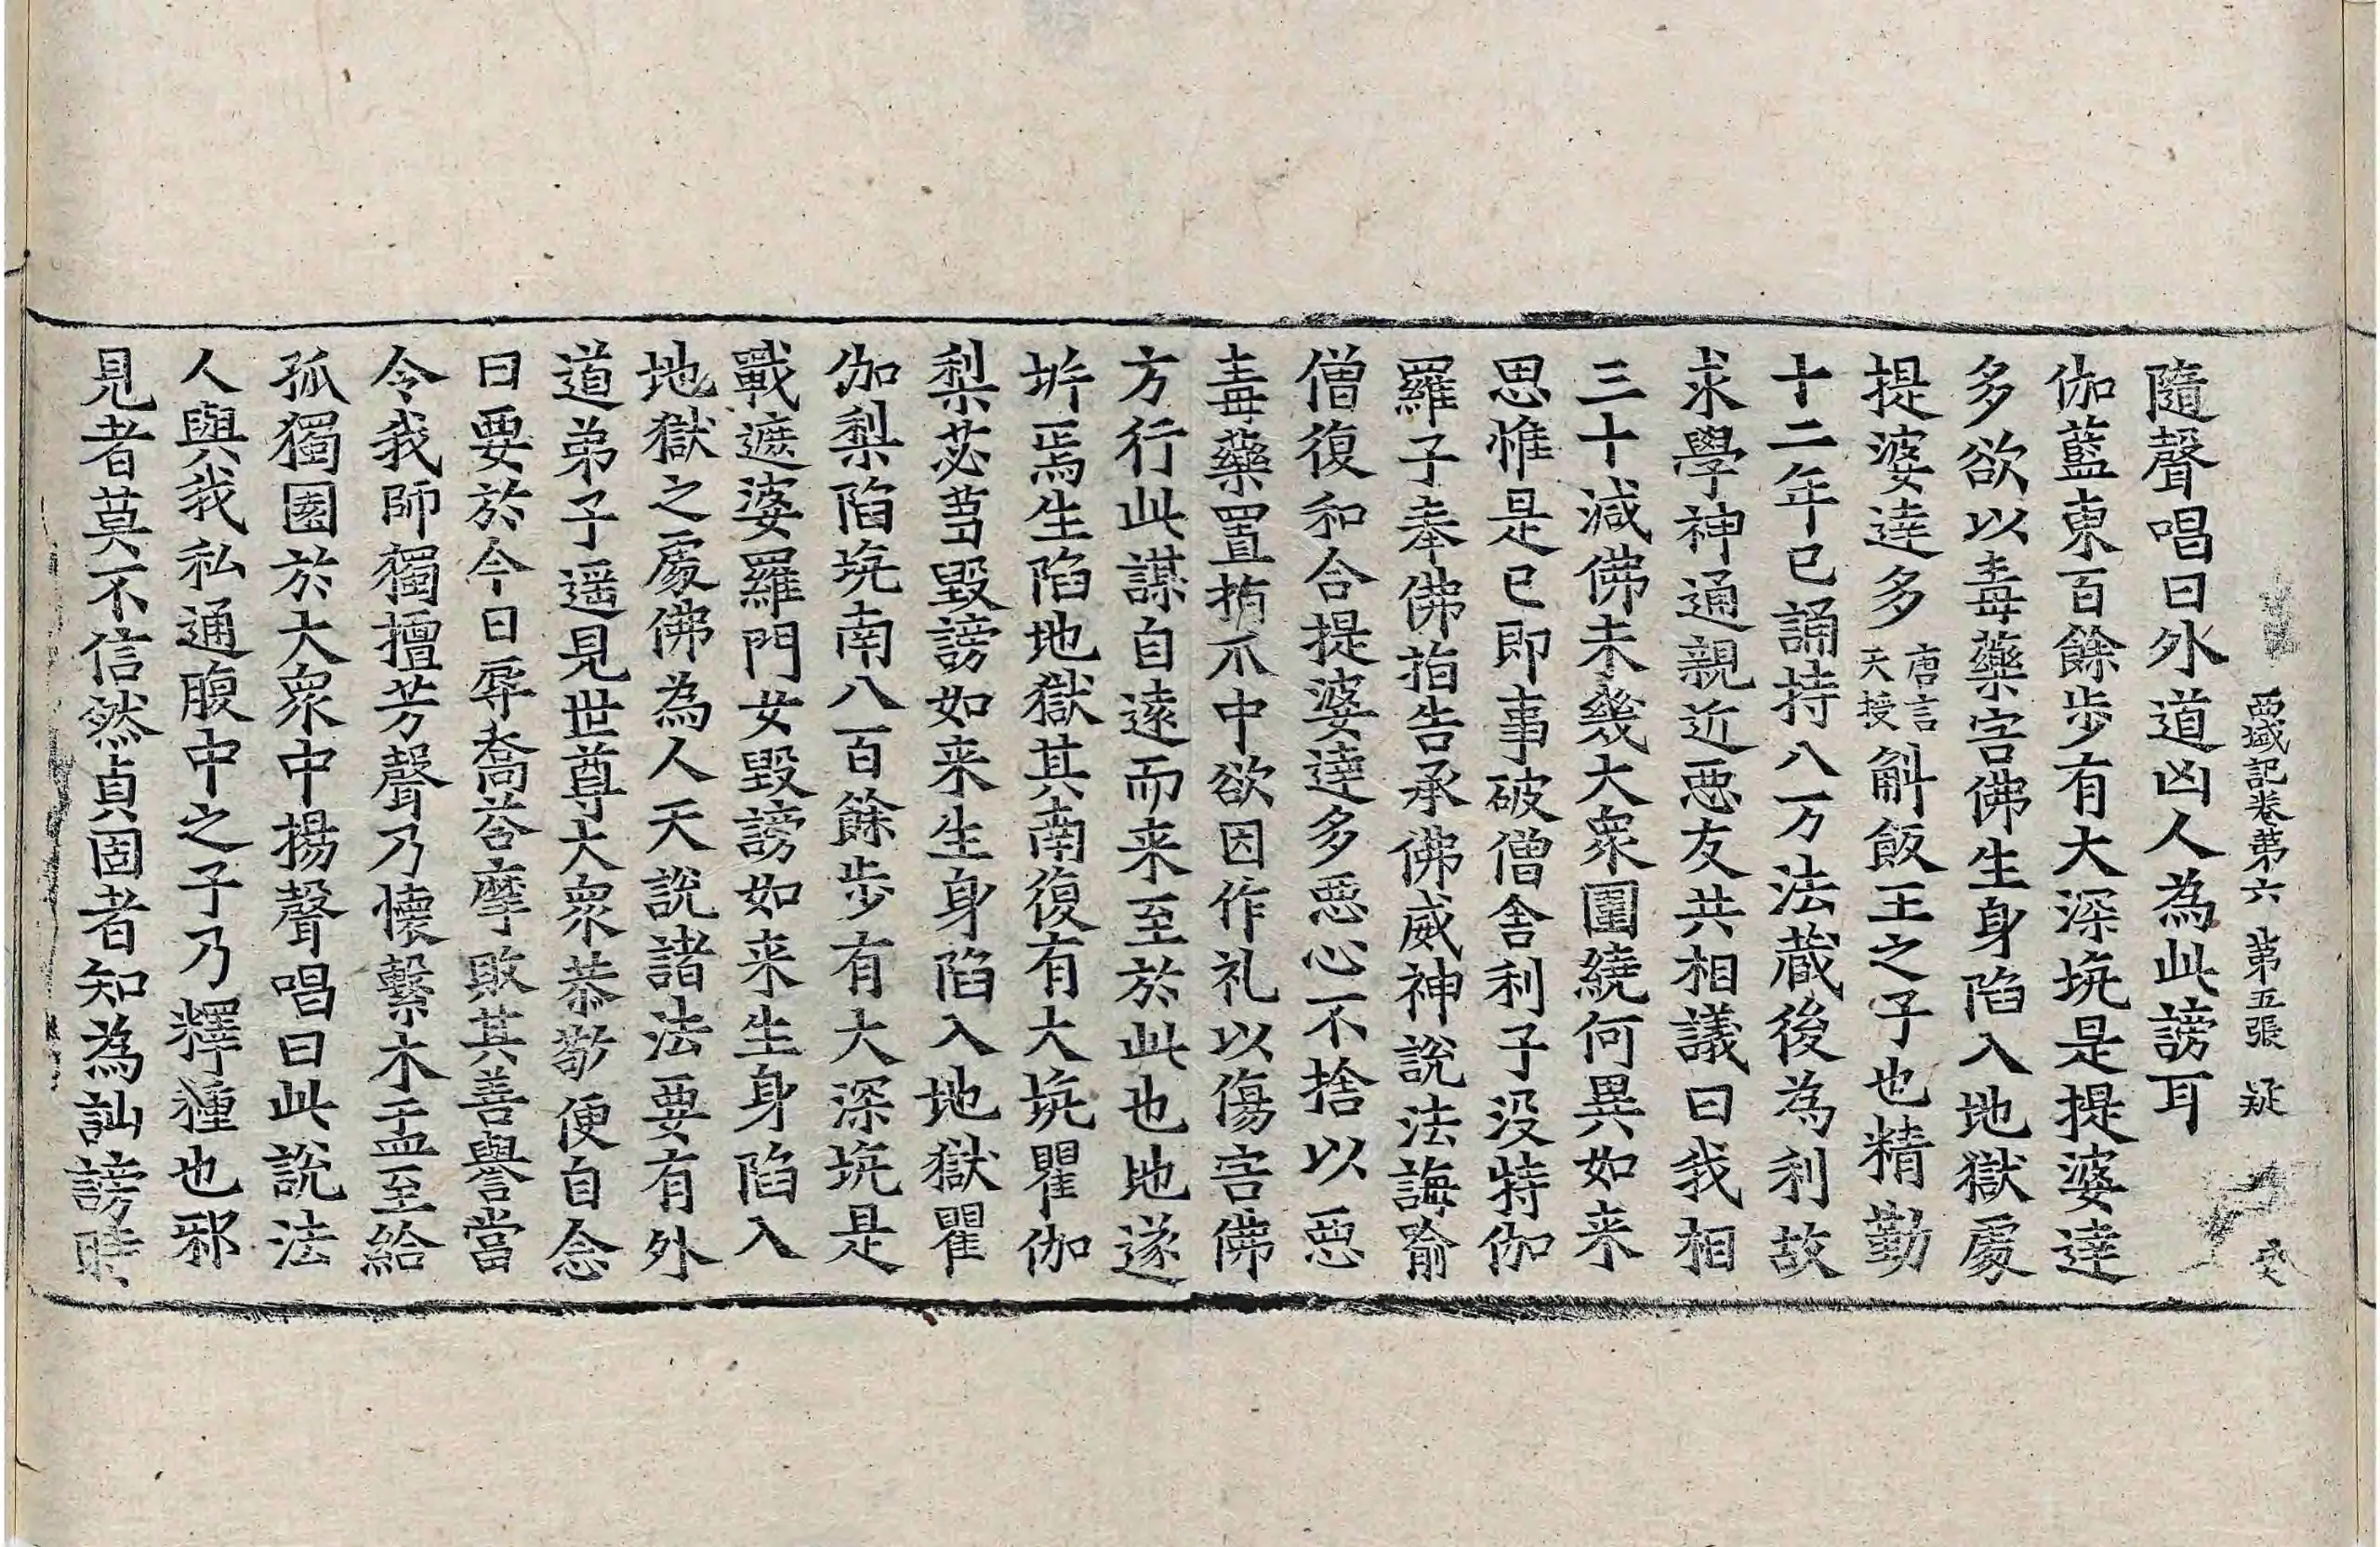 西域記卷第六 第五張 疑
隨聲唱曰外道凶人為此謗耳
伽藍東百餘步有大深坑是提婆達
多欲以毒藥害佛生身陷入地獄處
提婆達多唐言天授斛飯王之子也精勤
十二年已誦持八万法蔵後為利故
求學神通親近惡友共相議曰我相
三十減佛未幾大衆圍繞何異如来
思惟是已即事破僧舍利子没特伽
羅子奉佛指告承佛威神說法誨喻
僧復和合提婆達多惡心不捨以惡
毒藥置指爪中欲因作礼以傷害佛
方行此謀自遠而来至於此也地遂
坼焉生陷地獄其南復有大坑瞿伽
梨苾蒭毀謗如来生身陷入地獄瞿
伽梨陷坑南八百餘步有大深坑是
戰遮婆羅門女毀謗如来生身陷入
地獄之處佛為人天說諸法要有外
道弟子遥見世尊大衆恭敬便自念
曰要於今日辱喬荅摩敗其善譽當
令我師獨擅芳聲乃懷繫木盂至給
孤獨園於大衆中揚聲唱曰此說法
人與我私通腹中之子乃釋種也邪
見者莫不信然貞固者知為訕謗時